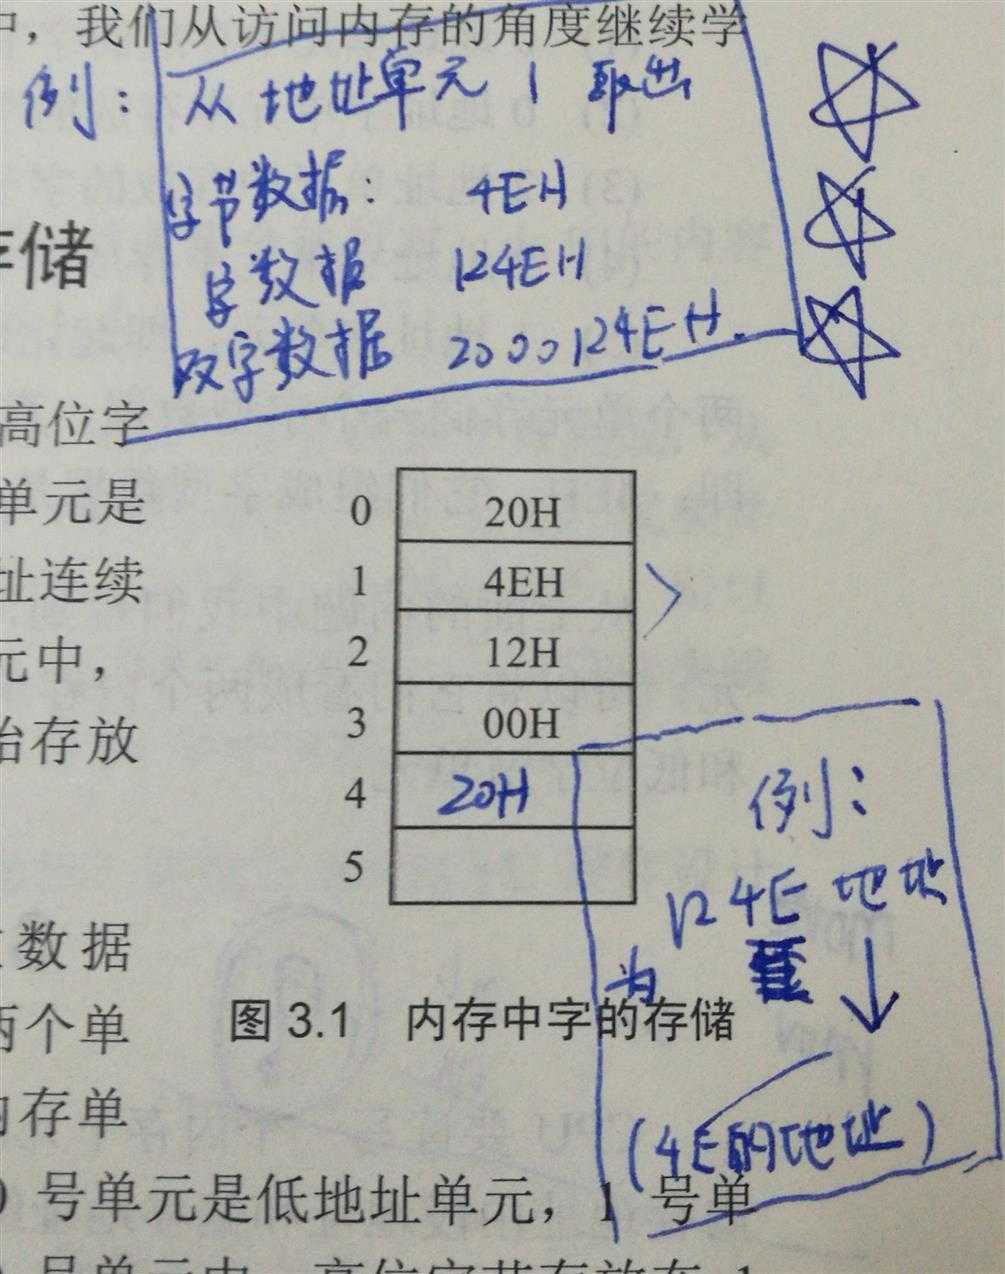 中，我们从访问内存的角度继续学
例：从地址单元 1 取出
字节数据： 4EH
字数据 124EH
双字数据 2000124EH.
存储
高位字
单元是
址连续
元中，
始存放
0 20H
1 4EH
2 12H
3 00H
4 20H
5
例：
124E 地址
为
(4E的地址)
数据
两个单
图 3.1 内存中字的存储
内存单
0 号单元是低地址单元，1 号单
号单元中，高位字节存放在 1